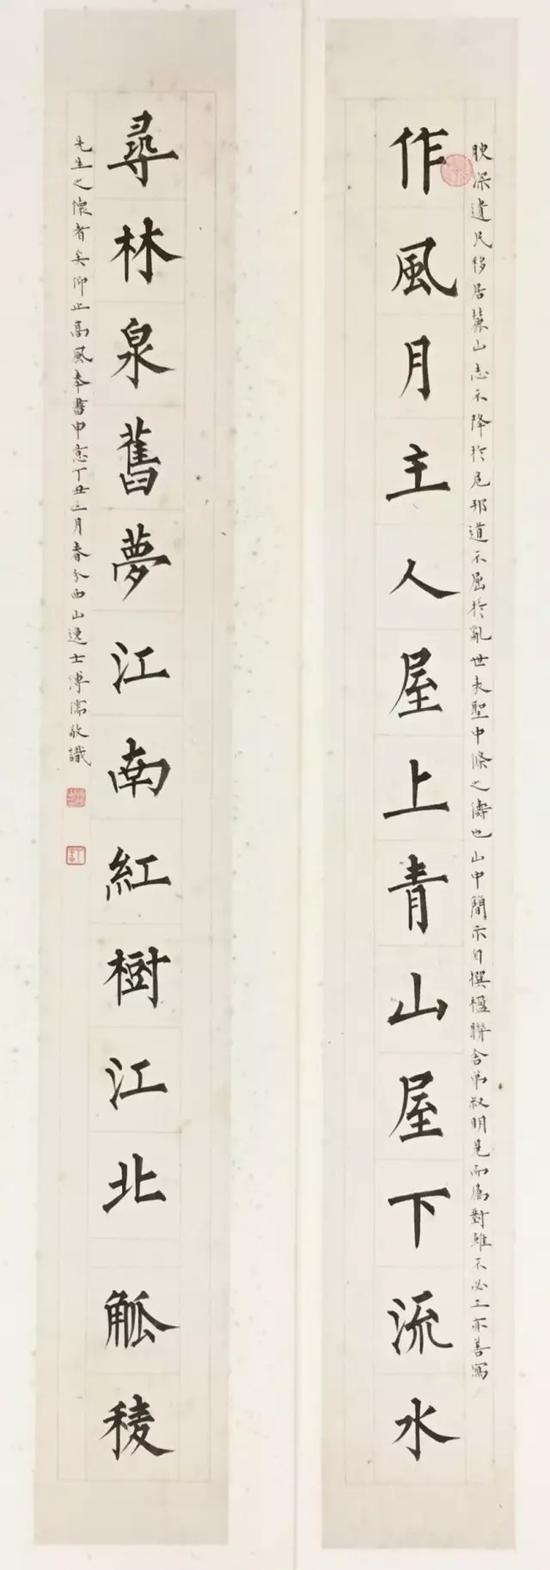 作風月主人屋上青山屋下流水
腴深遺兄移居蔗山志不降於危邦道不屈於亂世夫聖中滌之儔也山中簡示自撰楹聯合弟叔明見而屬對雖不必工亦善寫
尋林泉舊夢江南紅樹江北觚稜
先生之懷者矣仰止高風奉書申意丁丑二月春分西山逸士溥儒敬識